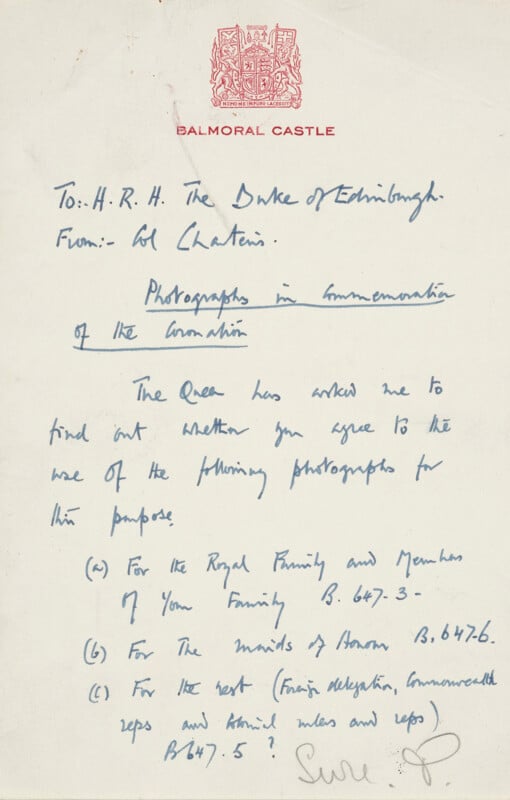 NEMO ME IMPUNE LACESSIT
BALMORAL CASTLE
To:- H. R. H. The Duke of Edinburgh.
From:- Col Charteris.
Photographs in Commemoration
of the Coronation
The Queen has asked me to
find out whether you agree to the
use of the following photographs for
this purpose.
(a) For the Royal Family and Members
of Your Family B. 647-3-
(b) For The maids of Honour B. 647-6.
(c) For the rest (Foreign delegation, Commonwealth
reps and Colonial rulers and reps)
B 647.5 ?
Sure. P.